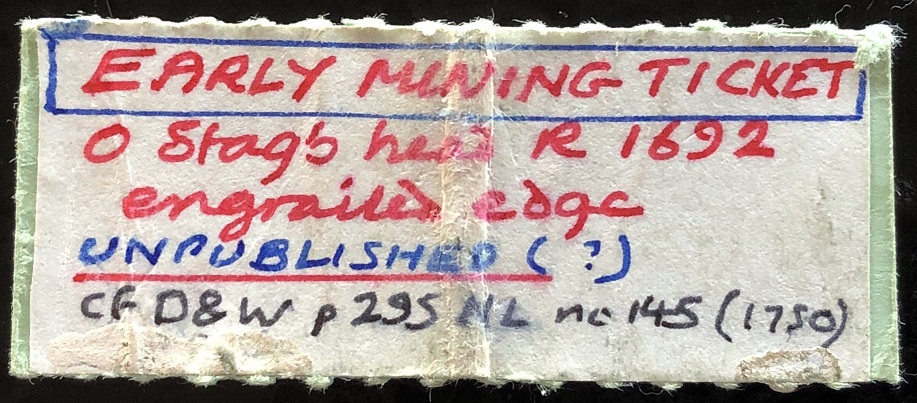 EARLY MINING TICKET
O Stag's head R 1692
engrailed edge
UNPUBLISHED (?)
CF D&W p 295 NL no 145 (1750)